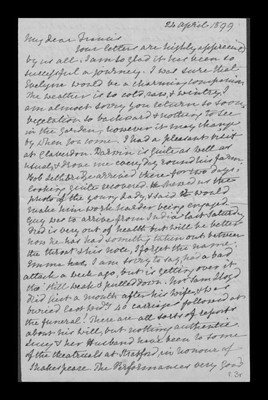 24 April 1899
My dear Francis
Your letters are highly appreciated
by us all. I am so glad it has been so
successful a journey. I was sure that
Evelyne would be a charming companion
The weather is so cold, raw, & wintry, I
am almost sorry you return so soon,
vegetation so backward & nothing to see
in the garden, however it may change
by when you come. I had a pleasant visit
at Claverdon. Darwin is quite as well as
usual & drove me every day round his farm
there for two days
looking quite recovered. He showed us the
photo of the young lady & said it would
make him work harder being engaged
Guy was to arrive from India last Saturday
Fred is very out of health but will be better
now he has had something taken out between
the throat & his nose, I forget the name.
Emma has, I am sorry to say, had a bad
attack a week ago, but is getting over it,
tho' still weak & pulled down.
died just a month after his wife, & was
buried last Wedy. 20 carriages followed at
the funeral! There are all sorts of reports
about his Will, but nothing authentic
Lucy & her Husband have been to some
of the theatricals at Stratford in honour of
Shakespeare. The Performances very good